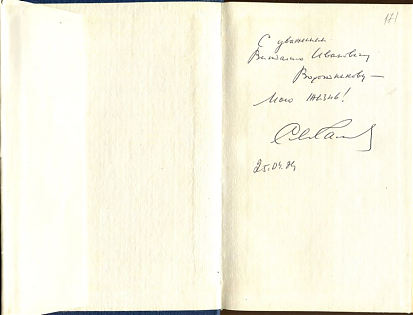 171
С уважением
Виталию Ивановичу
Ворошнекову —
Мою жизнь!
25.04.84